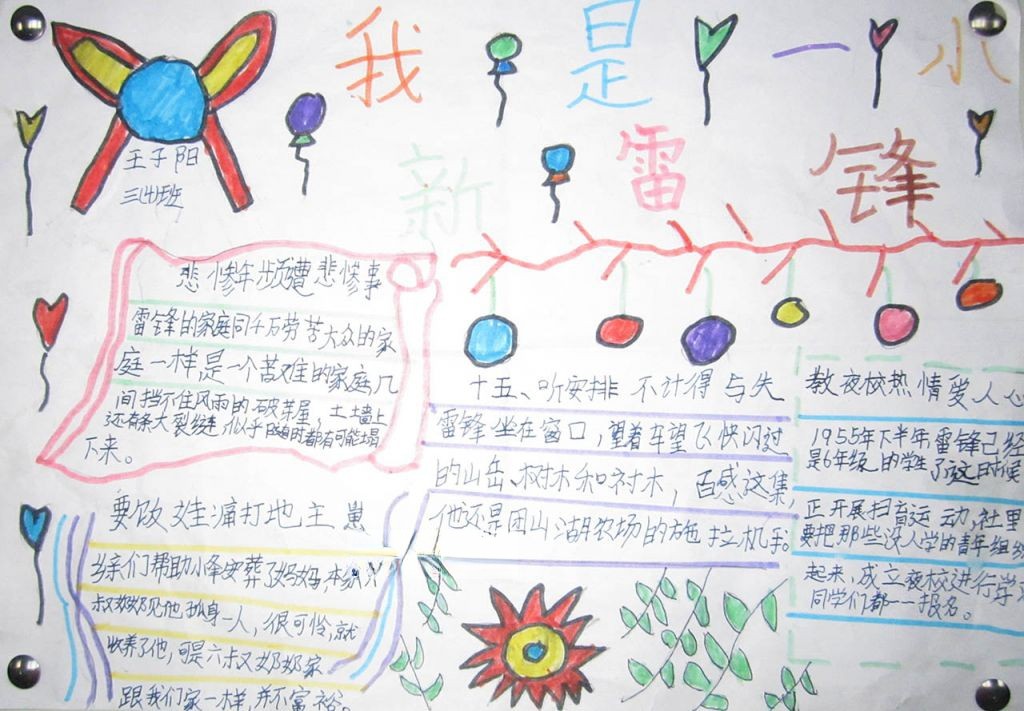 我是一小
新雷锋
王子阳
三(4)班
悲惨年频遭悲惨事
雷锋的家庭同千万劳苦大众的家
庭一样,是一个苦难的家庭几
间挡不住风雨的破茅屋,土土墙上
还有条大裂缝,似乎随时都有可能塌
下来。
要饭娃痛打地主崽
乡亲们帮助小锋安葬了妈妈,本
叔奶奶见他孤身一人,很可怜,就
收养了他,可是六叔奶奶家
跟我们家一样,并不富裕。
十五、听安排 不计得与失
雷锋坐在窗口,望着车望飞快闪过
的山岳、树木和村木,百感这集,
他还是团山湖农场的拖拉机手。
教夜校热情爱人心
1955年下半年,雷锋已经
是6年级的学生了这时候
正开展扫盲运动,社里
要把那些没入学的青年组织
起来,成立夜校进行学习
同学们都一一报名。